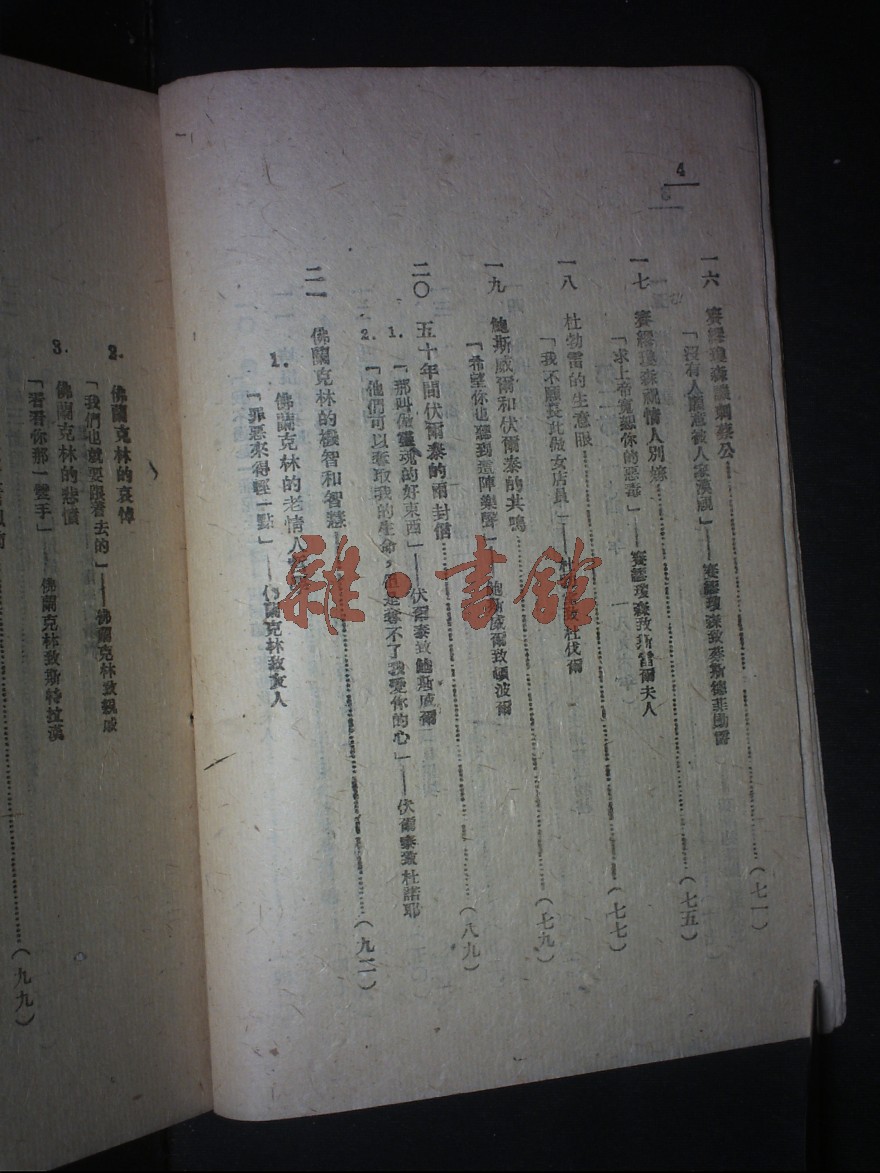 4
一六 賽繆瓊森諷刺蔡公……(七一)
「沒有人願意被人家漠視」——賽繆瓊森致蔡斯德菲勒爵
一七 賽繆瓊森職情人別嫁……(七五)
「求上帝寬恕你的惡毒」——賽繆瓊森致斯雷爾夫人
一八 杜勃雷的生意眼……(七七)
「我不願長此做女店員」——杜勃雷致杜伐爾
一九 鮑斯威爾和伏爾泰的共鳴……(七九)
「希望你也聽到這陣樂聲」 鮑斯威爾致頓波爾
二〇 五十年間伏爾泰的兩封信……(八九)
1. 「那叫做靈魂的好東西」——伏爾泰致鮑斯威爾
2. 「他們可以奪取我的生命,但是奪不了我愛你的心」——伏爾泰致杜諾耶
二一 佛蘭克林的機智和智慧……(九二)
1. 佛蘭克林的老情人
「罪惡來得輕一點」——佛蘭克林致友人
2. 佛蘭克林的哀悼
「我們也就要跟着去的」——佛蘭克林致親戚
3. 佛蘭克林的悲憤
「看看你那一雙手」——佛蘭克林致斯特拉漢
……(九九)
雜·書館